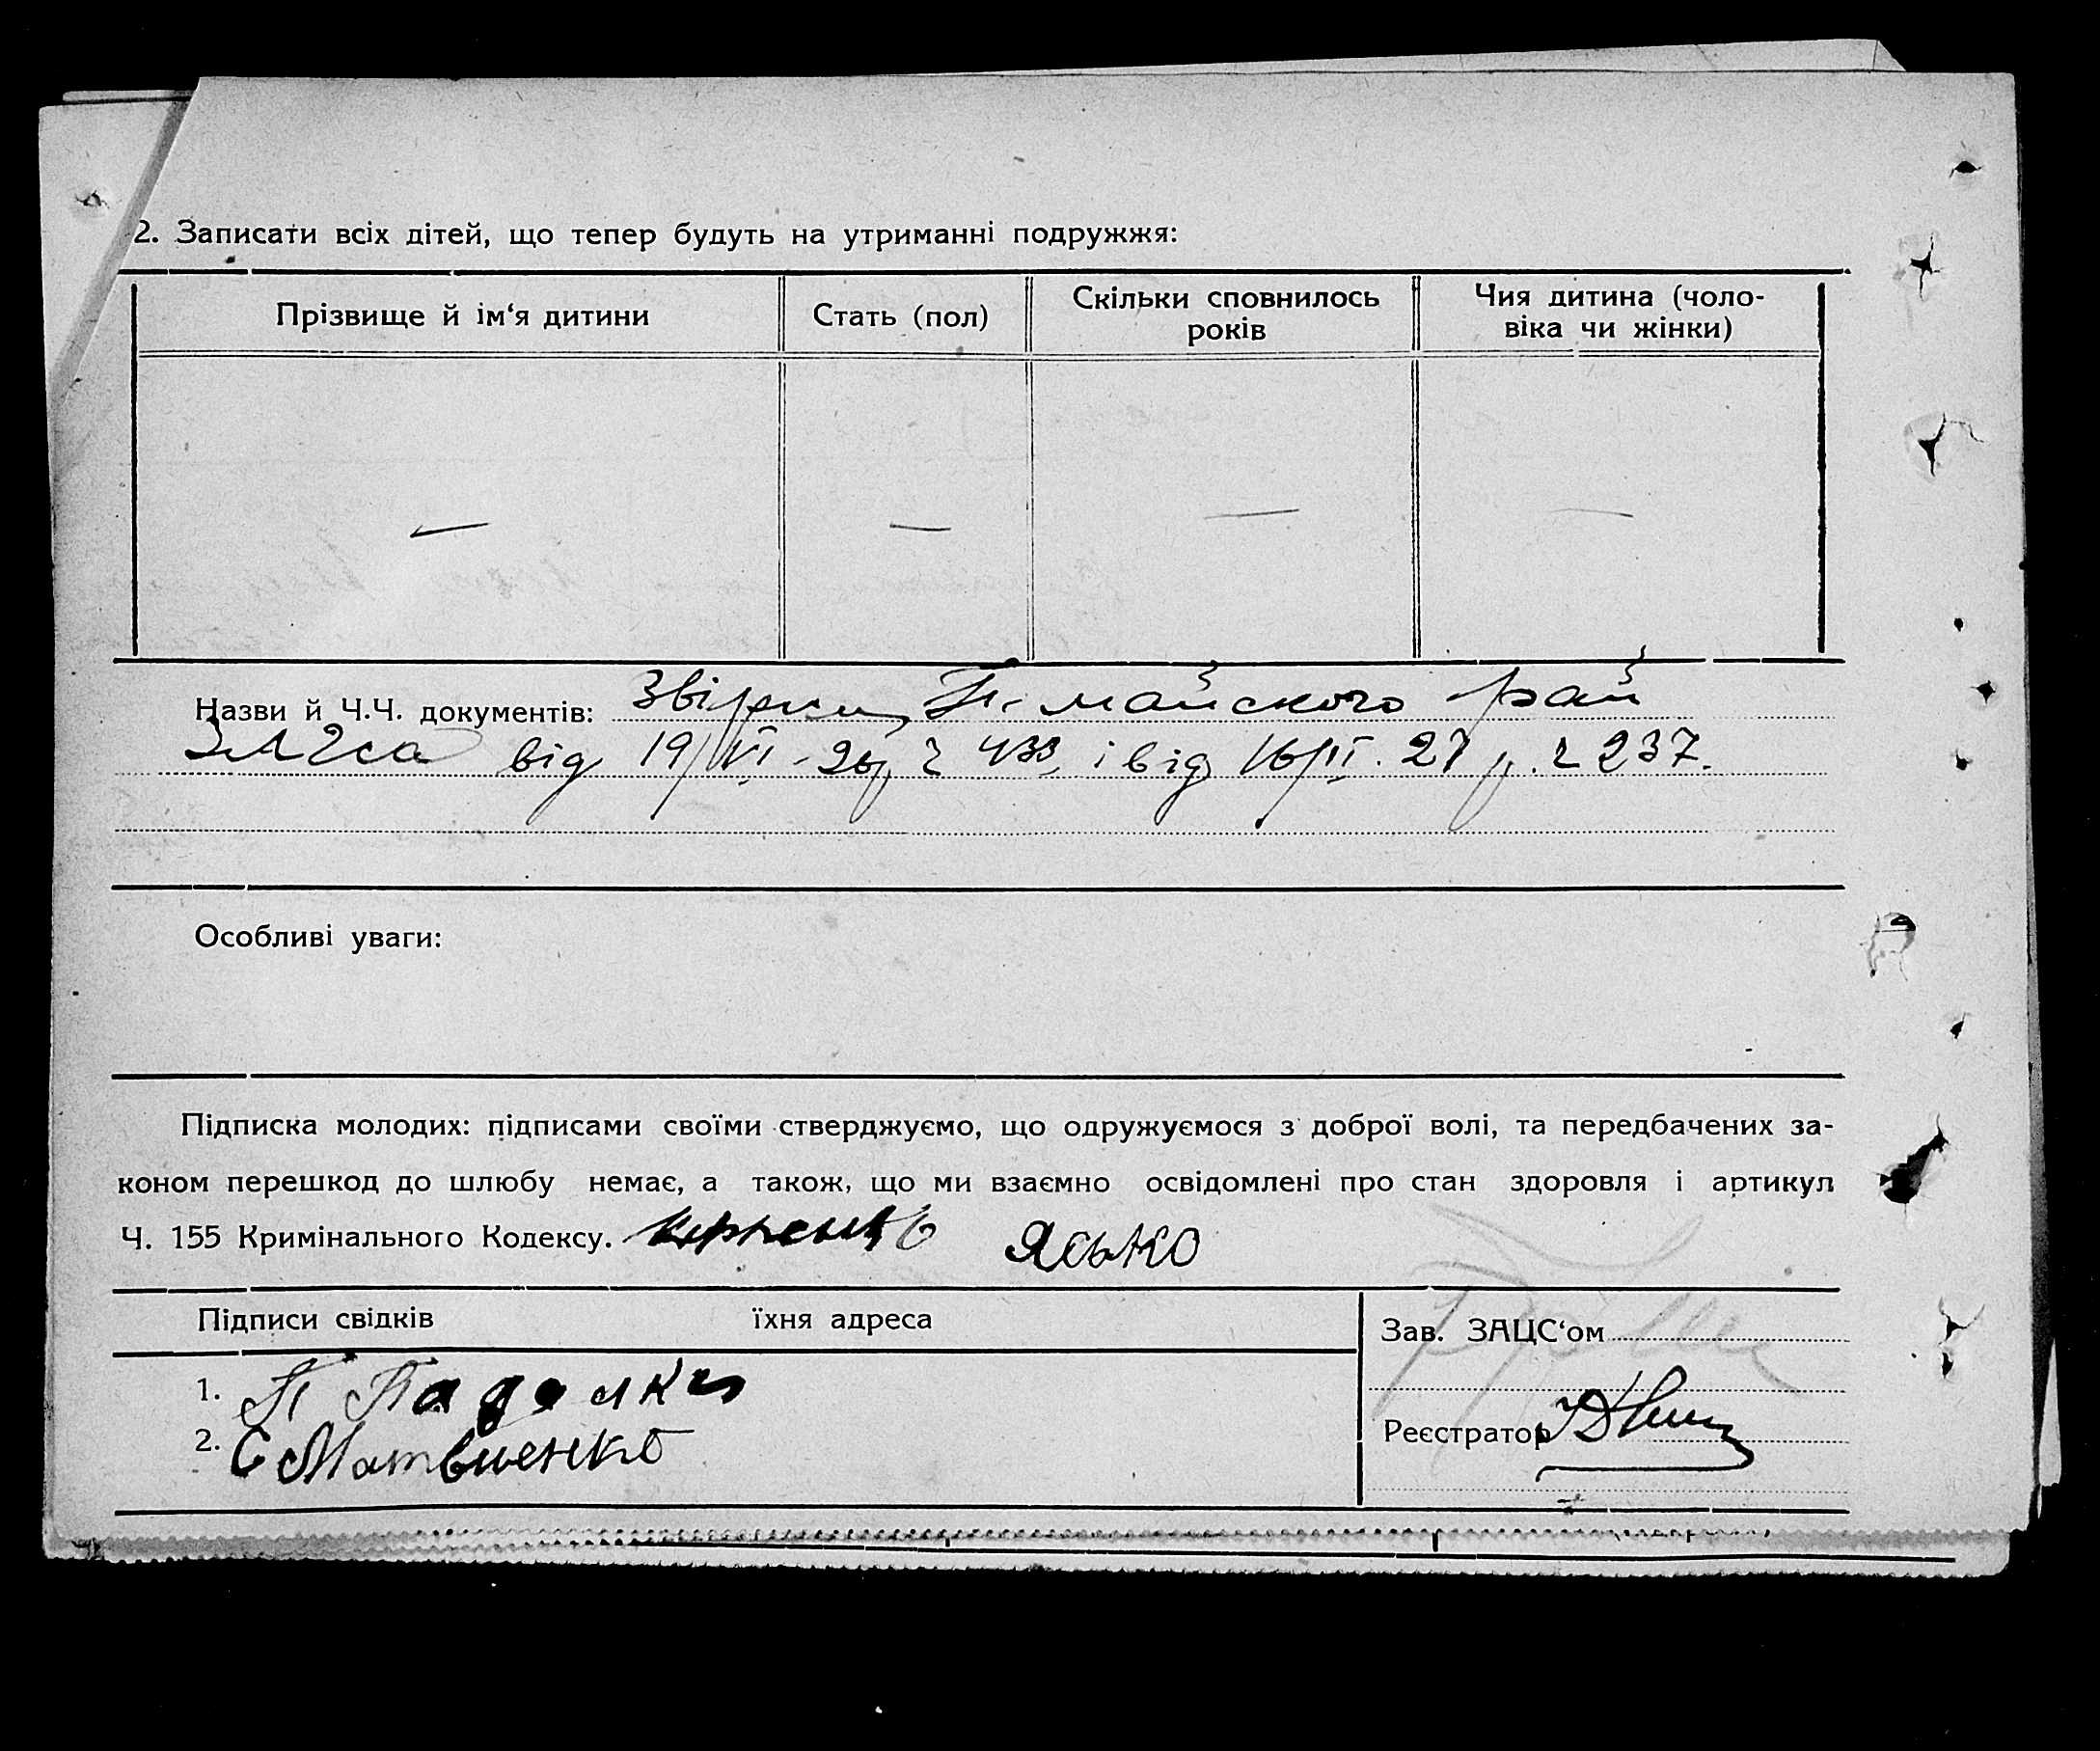 2. Записати всіх дітей, що тепер будуть на утриманні подружжя:
Прізвище й ім‘я дитини
Стать (пол)
Скільки сповнилось
років
Чия дитина (чоло-
віка чи жінки)
—
—
—
—
Назви й Ч.Ч. документів: майского рай
від 19/VI - 26 р. і від 16/II. 27 р. 237.
Особливі уваги:
Підписка молодих: підписами своїми стверджуємо, що одружуємося з доброї волі, та передбачених за-
коном перешкод до шлюбу немає, а також, що ми взаємно освідомлені про стан здоровля і артикул
Ч. 155 Кримінального Кодексу. Ясько
Підписи свідків їхня адреса
Зав. ЗАЦС‘ом
1. П
2. С Матвиенко
Реєстратор